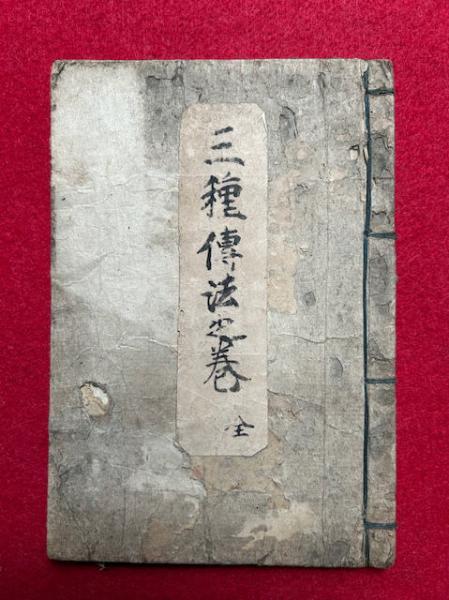 三種傳法之巻
全